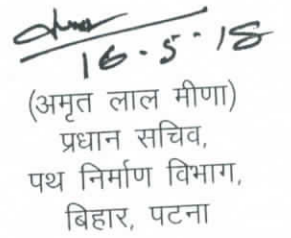 16-5-18
(अमृत लाल मीणा)
प्रधान सचिव,
पथ निर्माण विभाग,
बिहार, पटना